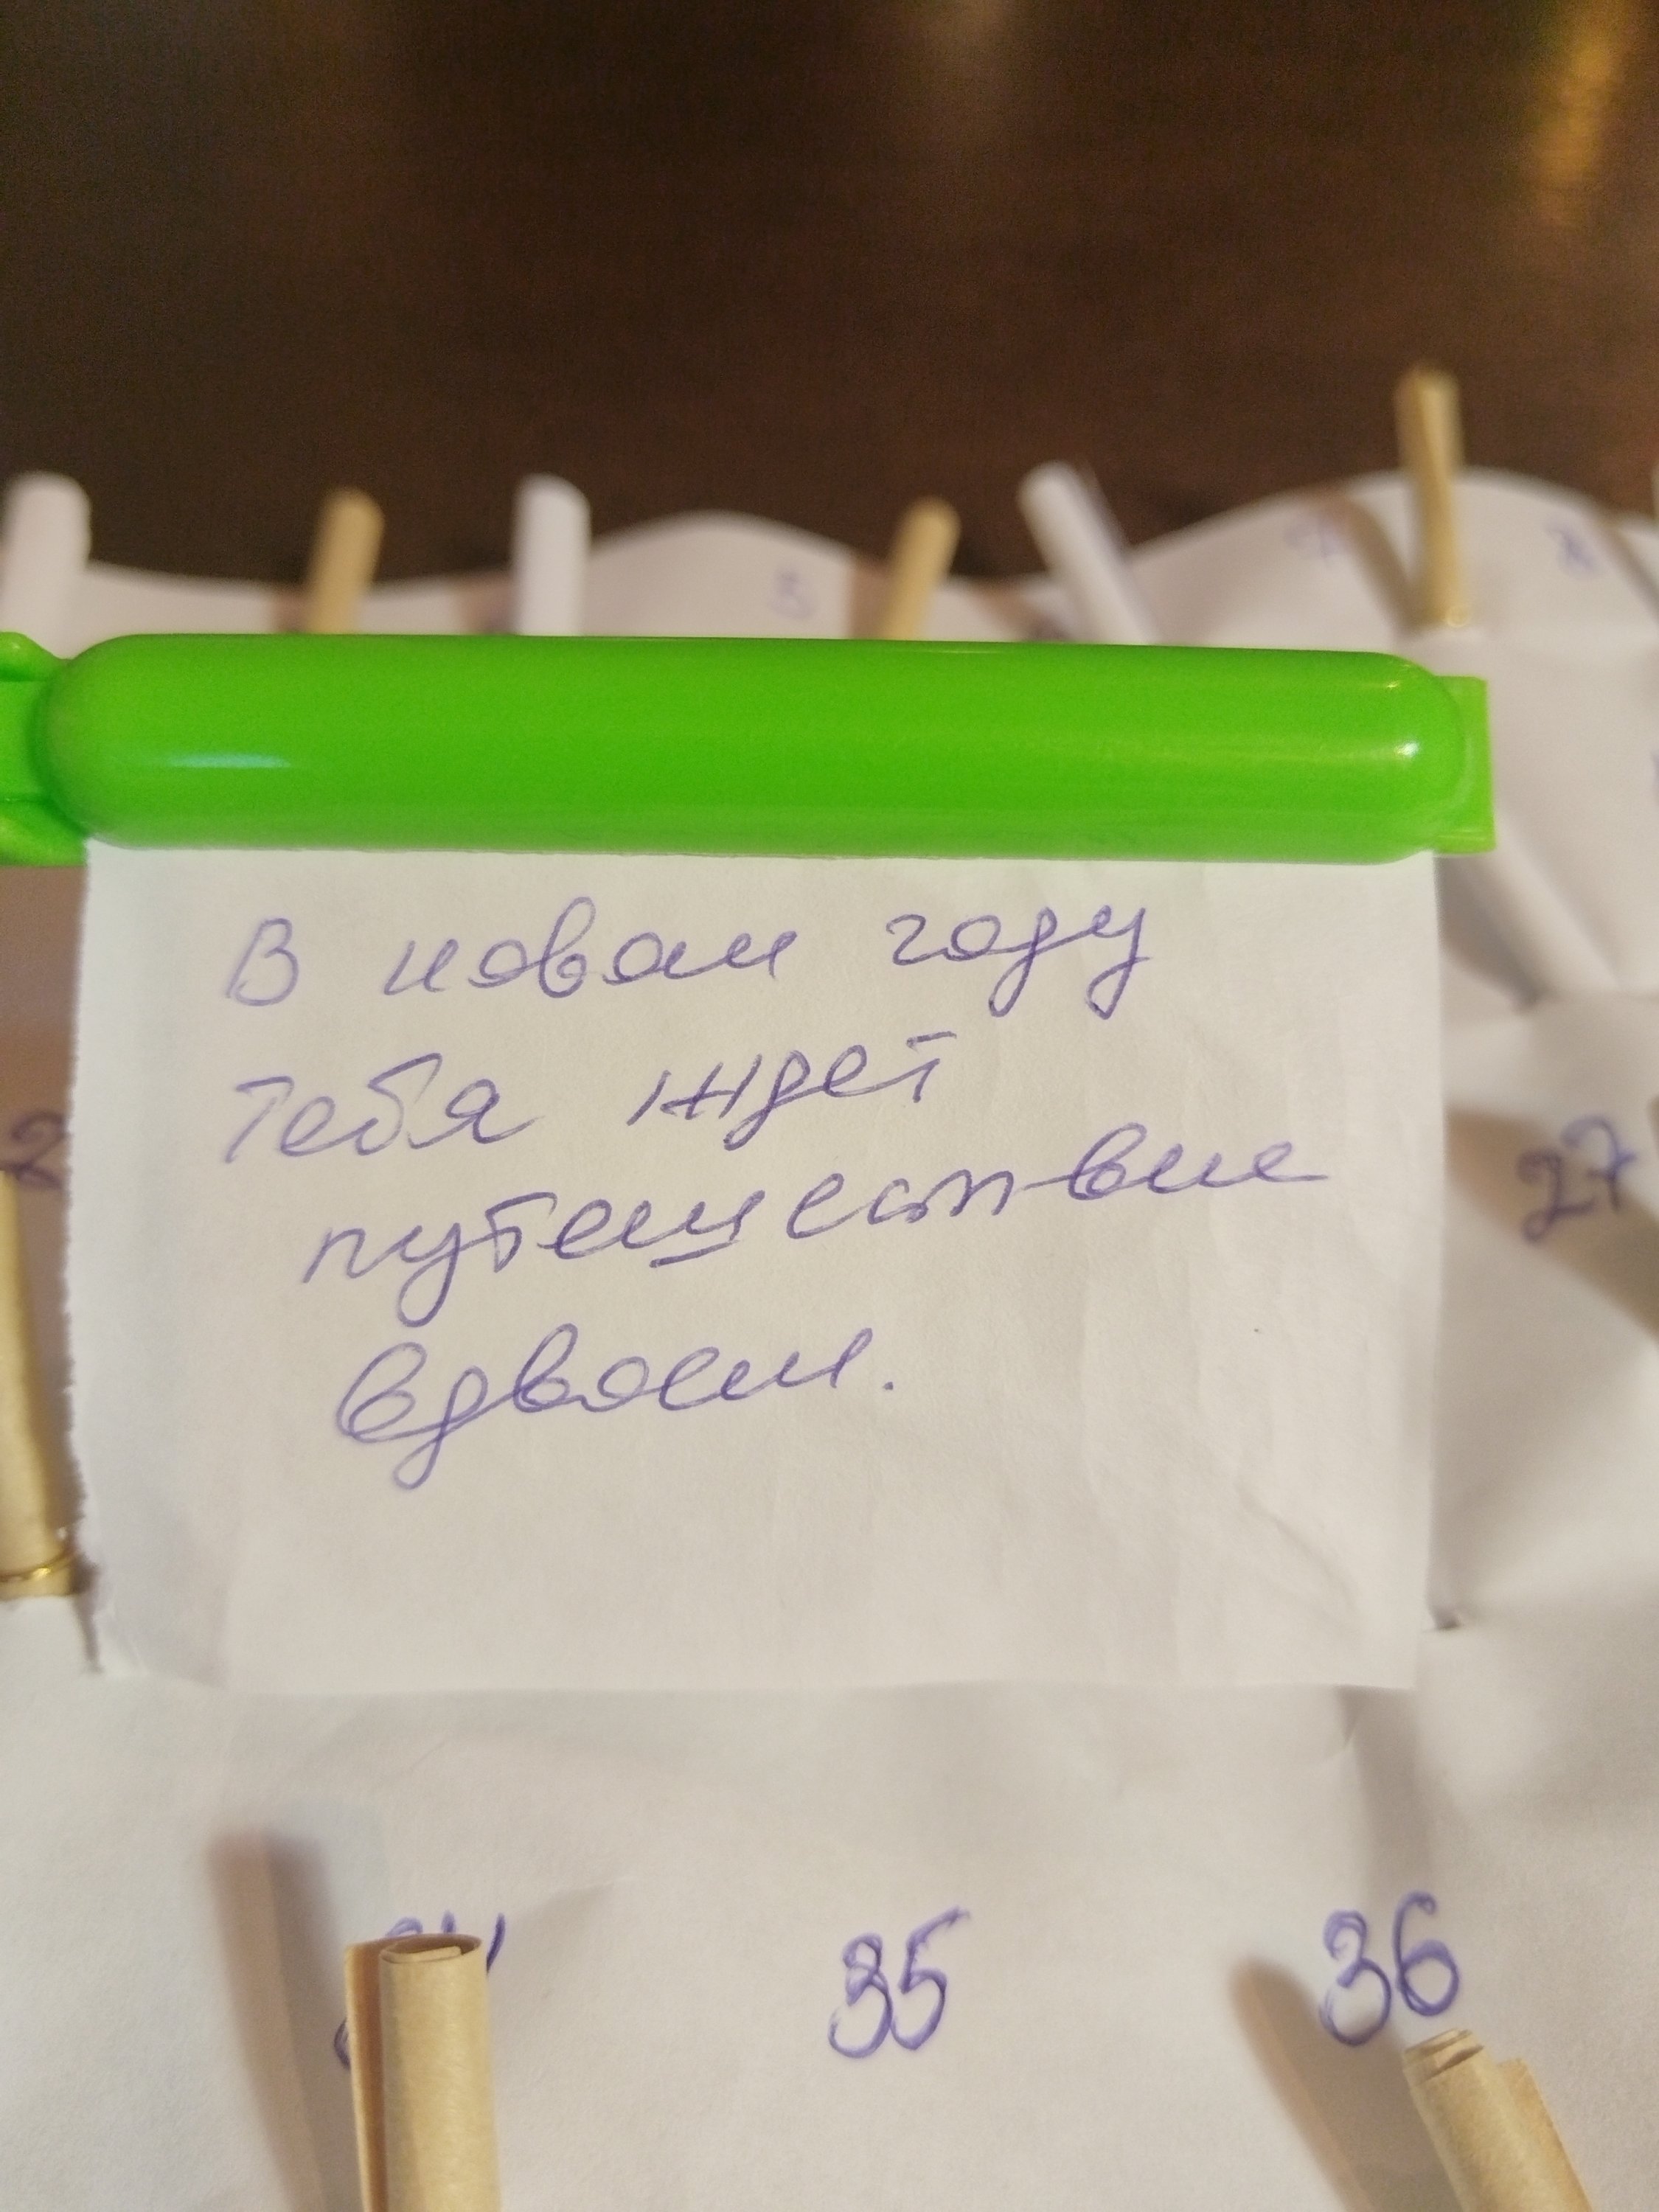 В новом году
тебя ждет
путешествие
вдвоем.
27
35
36